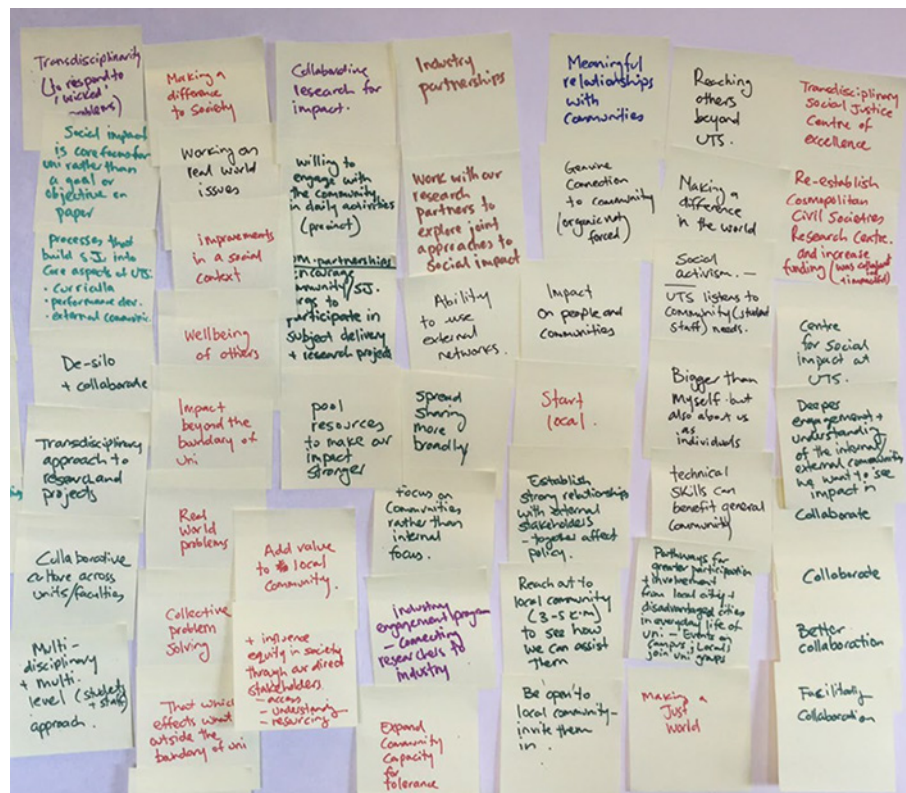 Transdisciplinarity
(to respond to
'wicked'
problems)
Social impact
is core focus for
uni rather than
a goal or
objective on
paper
Processes that
build S.J. into
Core aspects of UTS:
• curricula
• performance dev.
• external
De-silo
+ collaborate
Transdisciplinary
approach to
research and
projects
Collaborative
culture across
units/faculties
Multi-
disciplinary
+ multi
level (students
+ staff)
approach.
Making a
difference
to society
Working on
real world
issues
improvements
in a social
context
Wellbeing
of others
Impact
beyond the
bundary of
uni
Real
World
problems
Collective
problem
solving
That which
effects
outside the
bundary of uni
Add value
to local
Community.
+ influence
equity in society
through our direct
stakeholders.
- access
- understanding
- resourcing
Collaborative
research for
impact.
willing to
engage with
the community
in daily activities
(precinct)
partnerships
encourage
community/SJ.
orgs to
participate in
subject delivery
+ research projects
pool
resources
to make our
impact
stronger
Industry
partnerships
Work with our
research
partners to
explore joint
approaches to
Social impact
Ability
to use
external
networks.
spread
sharing
more
broadly
focus on
Communities
rather than
internal
focus.
industry
engagement program
- connecting
researchers to
industry
Expand
Community
Capacity
for
tolerance
Meaningful
relationships
with
communities
Genuine
Connection
to community
(organic not
forced)
Impact
On people and
communities
Start
local.
Establish
strong relationships
with external
stakeholders
- together affect
policy.
Reach out to
local community
(3-5 km)
to see how
we can assist
them
Be 'open' to
local community-
invite them
in.
Reaching
others
beyond
UTS.
Making a
difference
in the world
Social
activism. -
UTS listens to
community (student
staff) needs.
Bigger than
myself but
also about us
as
individuals
technical
skills can
benefit general
community
Pathways for
greater participation
+ involvement
from local city +
disadvantaged cities
in everyday life of
uni. - Events on
campus; Locals
join uni groups
Making a
Just
World
Transdisciplinary
Social Justice
Centre of
excellence
Re-establish
Cosmopolitan
Civil Societies
Research Centre.
and increase
funding (was
Centre
for social
impact at
UTS.
Deeper
engagement +
understanding
of the internal/
external community
we want to see
impact in
Collaborate
Collaborate
Better
collaboration
Facilitating
Collaboration